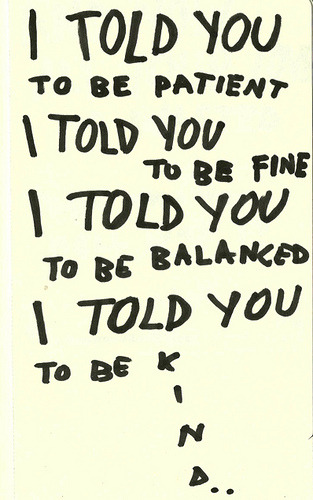 I TOLD YOU
TO BE PATIENT
I TOLD YOU
TO BE FINE
I TOLD YOU
TO BE BALANCED
I TOLD YOU
TO BE K
I
N
D..